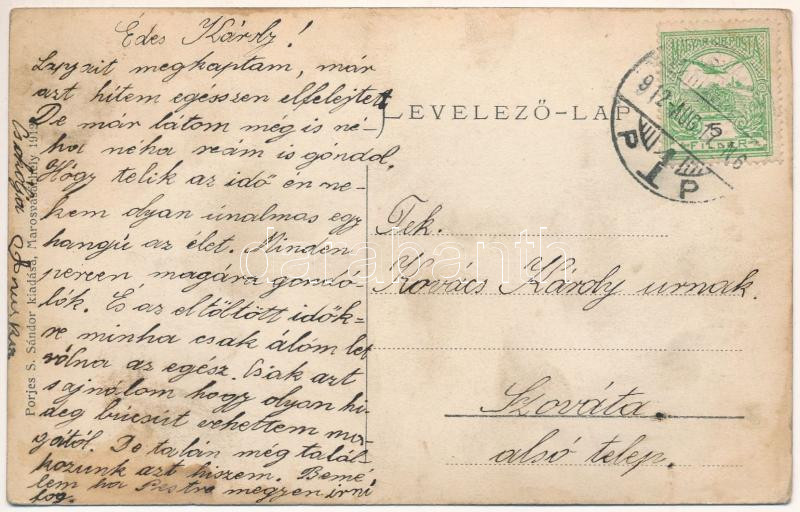 Édes Károly!
Lapját megkaptam, már
azt hitem egésszen elfelejtett
De már látom még is né-
ha néha reám is góndol.
Hógy telik az idő én ne-
kem olyan únalmas egy
hangú az élet. Minden
percen magára gondó-
lók. És az eltöltött idők-
re minha csak álóm let
vólna az egész. Csak azt
sajnálom hogy olyan hi-
deg búcsút vehettem ma-
gától. De talán még talál-
kozunk azt hiszem. Bemé-
lem ha Pestre megyen irni
fog.
Csókolja Anuska
Porjes S. Sándor kiadása, Marosvásárhely 1912
LEVELEZŐ-LAP
MAGYAR KIR. POSTA
5
FILLÉR
912 AUG
Tek.
Kovács Károly urnak.
Szováta
alsó telep.
darabanth.com